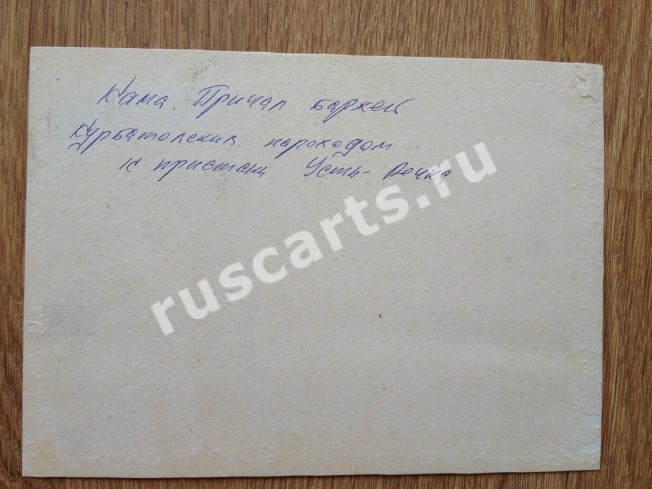 Кама. Причал баржей
Курбатовским пароходом
к пристани Усть-Речка
ruscarts.ru